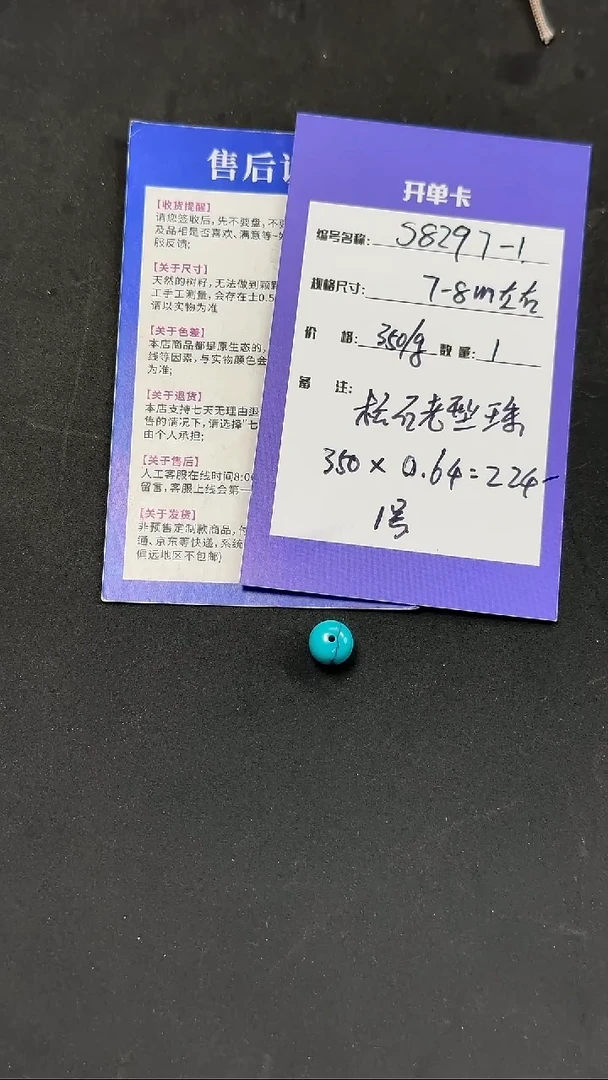 售后
【收货提醒】
请您签收后，先不要盘，不
及品相是否喜欢、满意等
服反馈;
【关于尺寸】
天然的树籽，无法做到颗
工手工测量，会存在士0.5
请以实物为准
【关于色差】
本店商品都是原生态的，
线等因素，与实物颜色会
为准;
【关于退货】
本店支持七天无理由退
售的情况下，请选择"七
由个人承担;
【关于售后】
人工客服在线时间8:0
留言，客服上线会第一
【关于发货】
非预售定制款商品，付
通、京东等快递，系统
偏远地区不包邮)
开单卡
编号名称: S8297-1
规格尺寸: 7-8m左右
价 格: 350/g 数量: 1
备 注:
松石老型珠
350×0.64=224-
1号